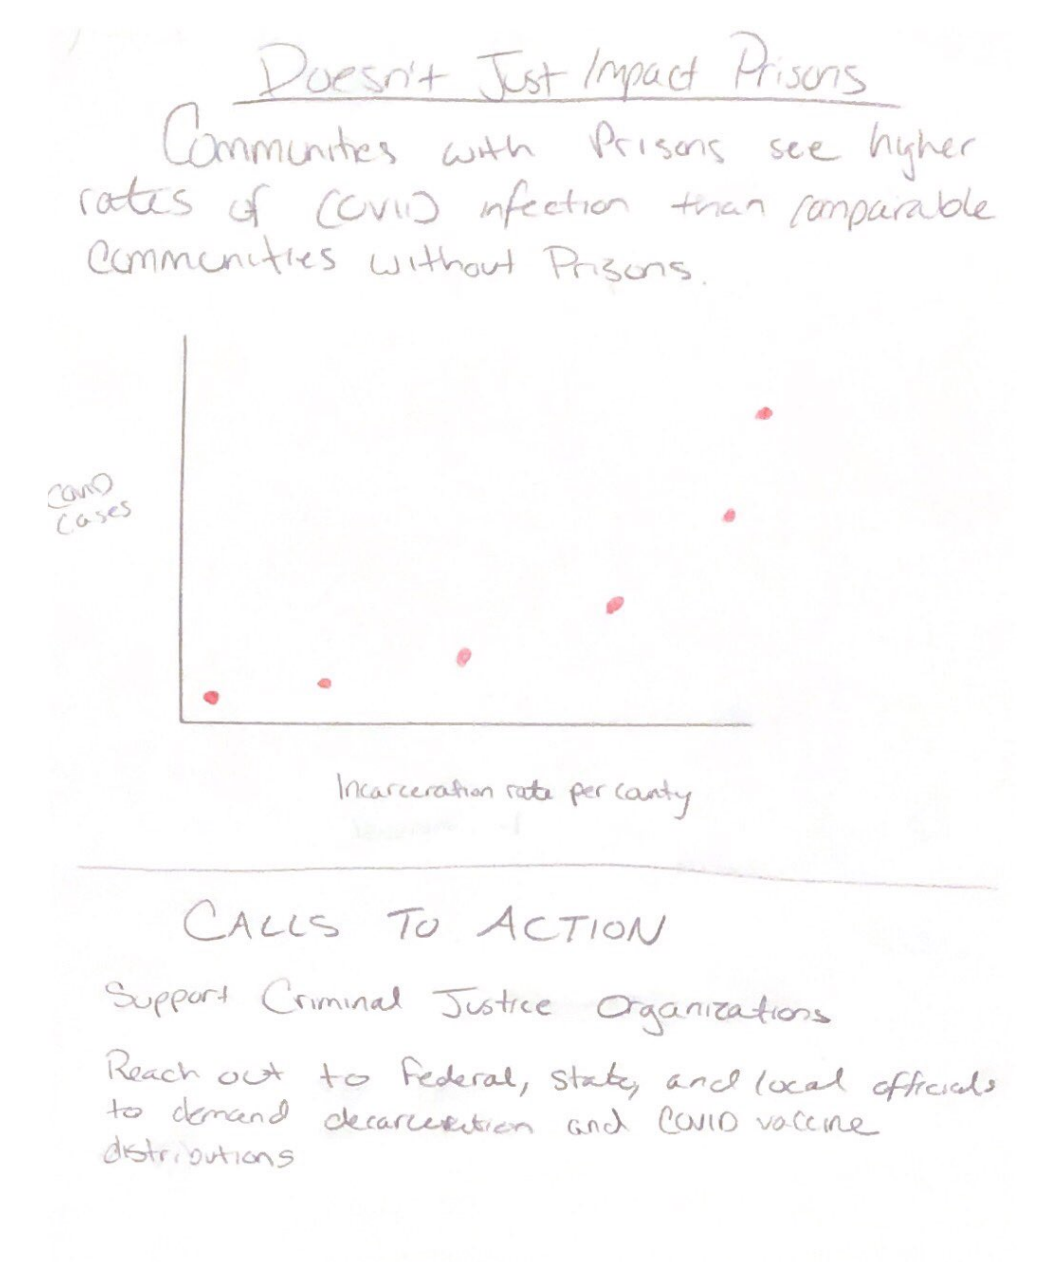 Doesn't Just Impact Prisons
Communities with Prisons see higher
rates of COVID infection than comparable
Communities without Prisons.
COVID
Cases
Incarceration rate per county
CALLS TO ACTION
Support Criminal Justice Organizations
Reach out to federal, state, and local officials
to demand decarceration and COVID vaccine
distributions